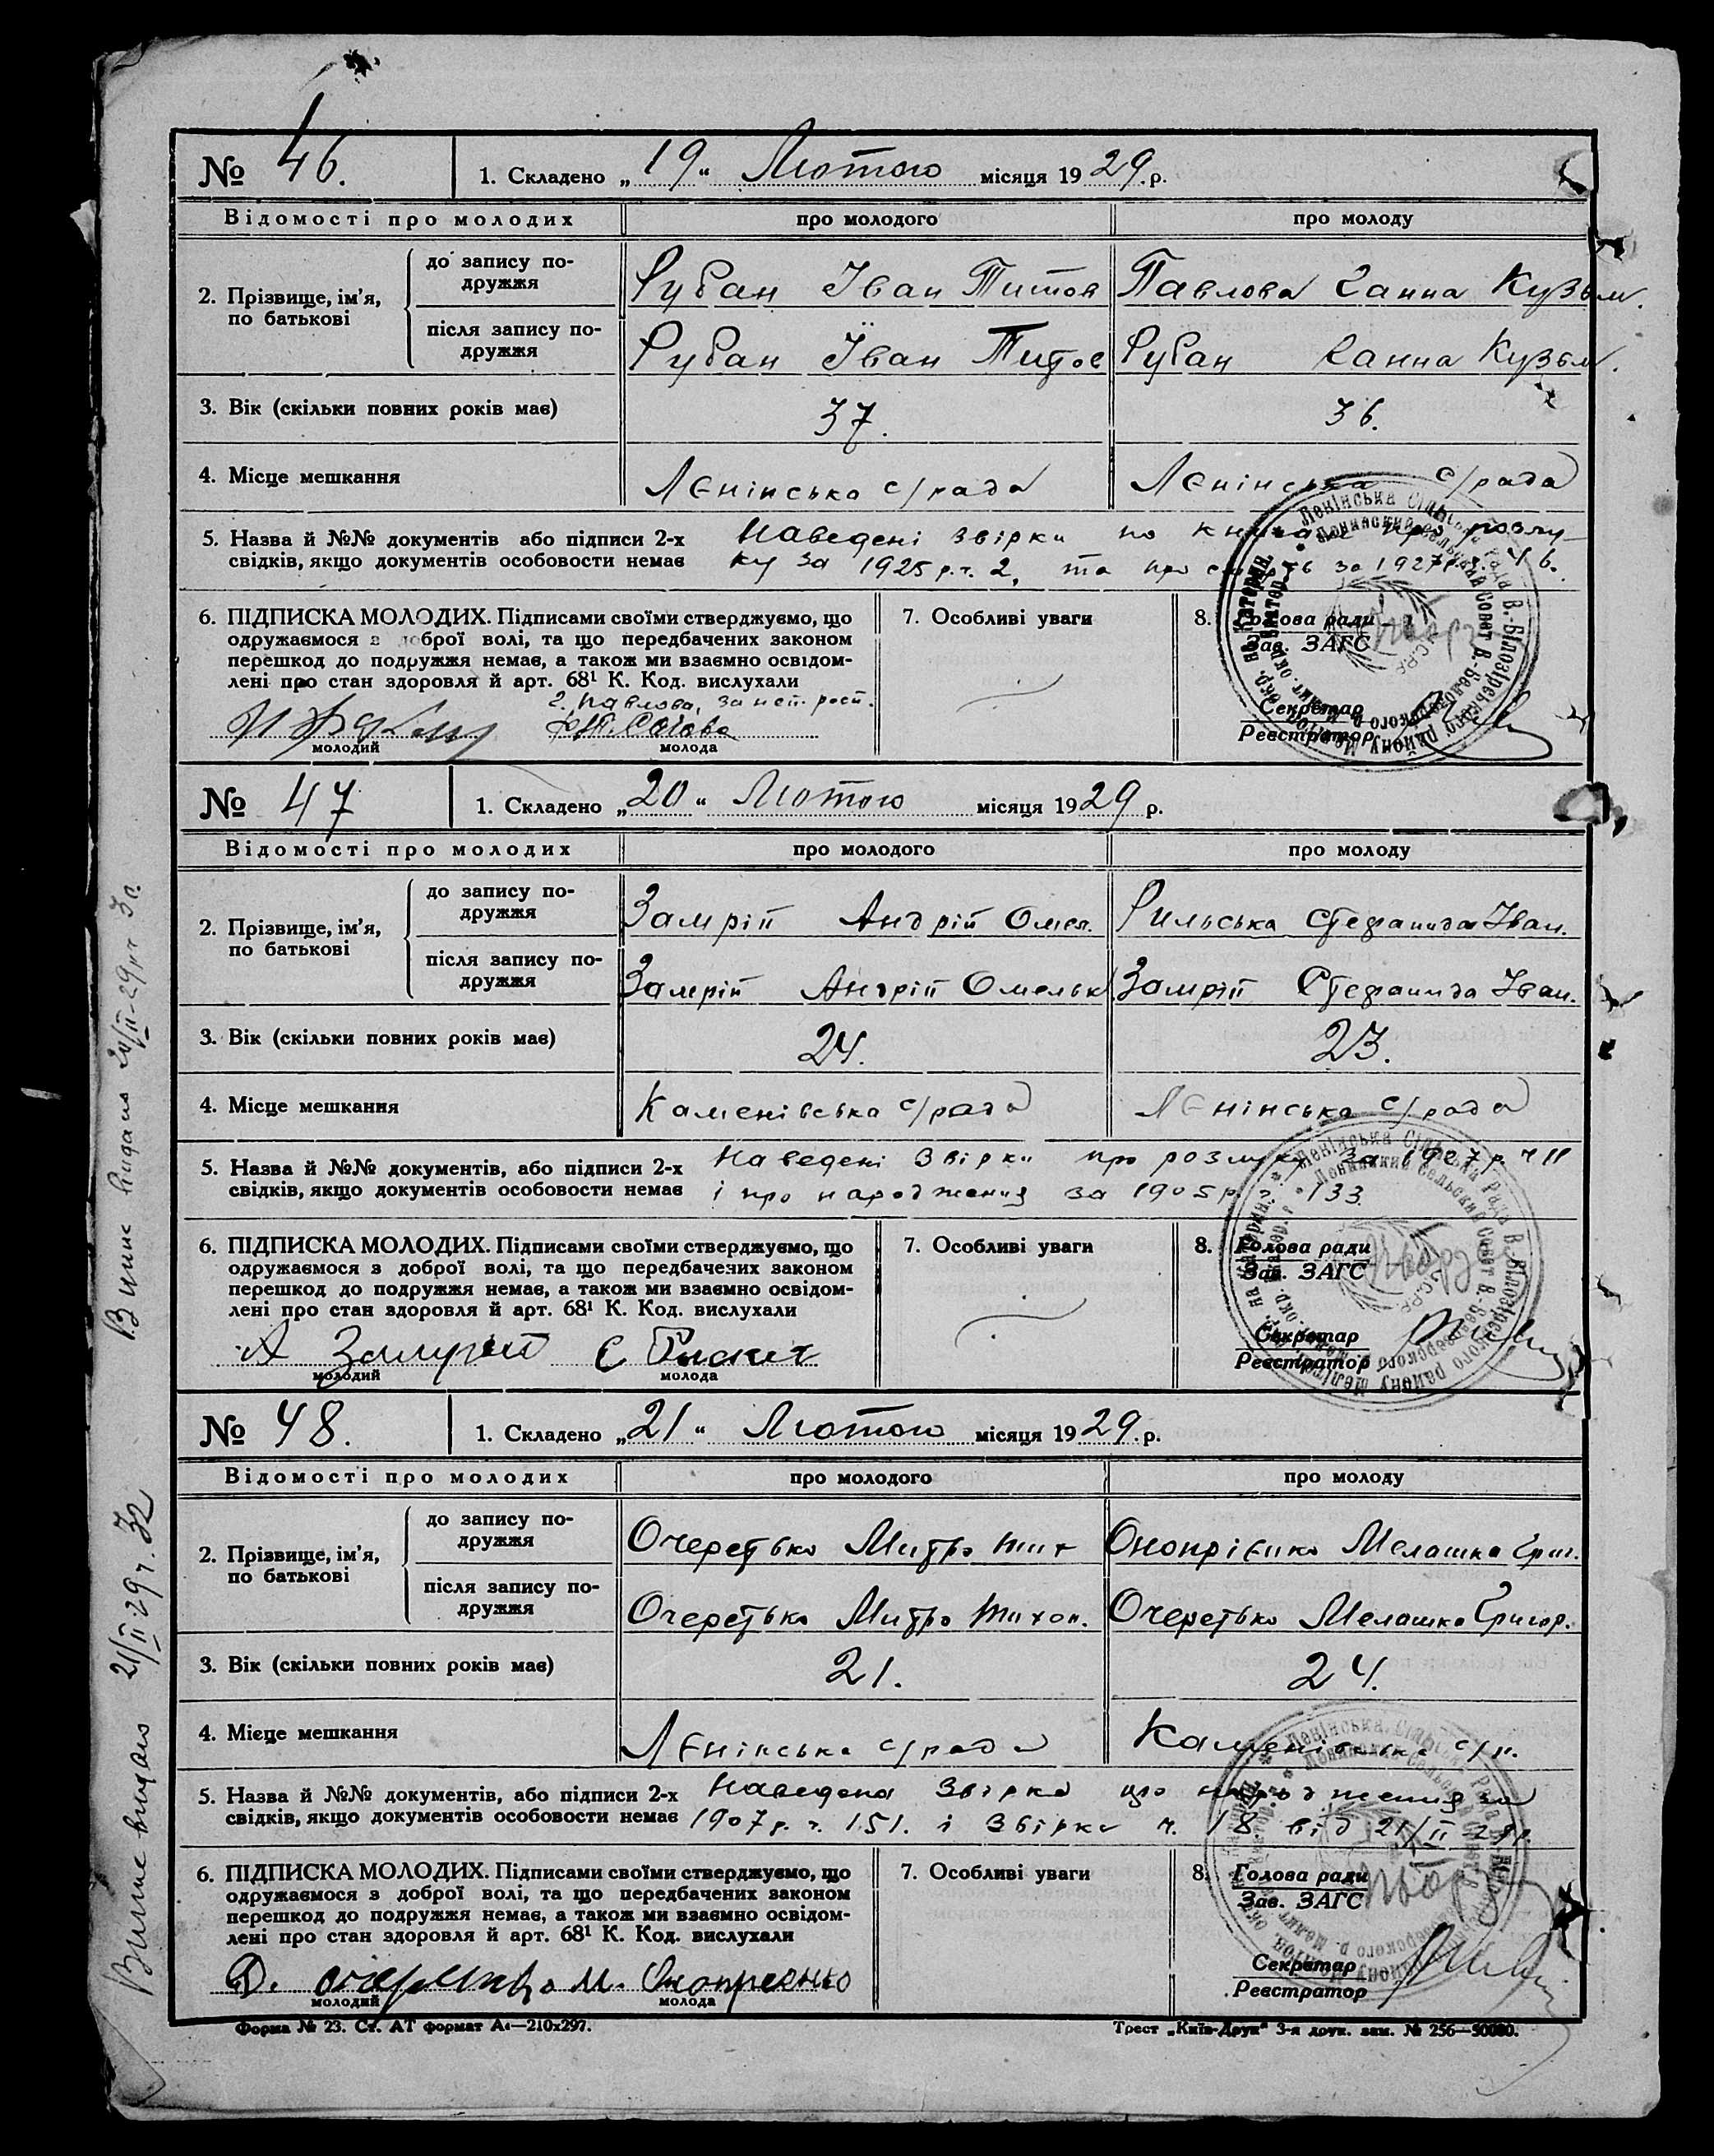 № 46. 1. Складено „19“ Лютого місяця 1929 р.
Відомості про молодих про молодого про молоду
2. Прізвище, ім'я, по батькові
до запису подружжя Рубан Іван Титов Павлова Ганна Кузьм.
після запису подружжя Рубан Їван Титов Рубан Ганна Кузьм.
3. Вік (скільки повних років має) 37. 36.
4. Місце мешкання Лєнінська с/рада Лєнінська с/рада
5. Назва й №№ документів або підписи 2-х Наведені звірки по книгах про розлу-
свідків, якщо документів особовости немає ку за 1925 р. ч. 2, та про смерть за 1927 р. ч. 46.
6. ПІДПИСКА МОЛОДИХ. Підписами своїми стверджуємо, що
одружаємося з доброї волі, та що передбачених законом
перешкод до подружжя немає, а також ми взаємно освідом-
лені про стан здоровля й арт. 68¹ К. Код. вислухали
Г. Павлова, за неп. розп.
молодий молода
7. Особливі уваги
8. Голова ради
Зав. ЗАГС
Секретар
Реєстратор
№ 47 1. Складено „20“ Лютого місяця 1929 р.
Відомості про молодих про молодого про молоду
2. Прізвище, ім'я, по батькові
до запису подружжя Замрій Андрій Омел. Рильська Стефанида Іван.
після запису подружжя Замрій Андрій Омельк Замрій Стефанида Іван.
3. Вік (скільки повних років має) 24. 23.
4. Місце мешкання Каменівська с/рада Лєнінська с/рада
5. Назва й №№ документів, або підписи 2-х Наведені звірки про розлуку за 1927 р. ч 11
свідків, якщо документів особовости немає і про народження за 1905 р. 133
6. ПІДПИСКА МОЛОДИХ. Підписами своїми стверджуємо, що
одружаємося з доброї волі, та що передбачених законом
перешкод до подружжя немає, а також ми взаємно освідом-
лені про стан здоровля й арт. 68¹ К. Код. вислухали
А Замрий С
молодий молода
7. Особливі уваги
8. Голова ради
Зав. ЗАГС
Секретар
Реєстратор
№ 48. 1. Складено „21“ Лютого місяця 1929 р.
Відомості про молодих про молодого про молоду
2. Прізвище, ім'я, по батькові
до запису подружжя Очеретько Митро тих Онопрієнко Мелашка Григ.
після запису подружжя Очеретько Митро тихон. Очеретько Мелашка Григор.
3. Вік (скільки повних років має) 21. 24.
4. Місце мешкання Лєнінська с/рада Каменівська с/р.
5. Назва й №№ документів, або підписи 2-х Наведена звірка про народження за
свідків, якщо документів особовости немає 1907 р. ч. 151. і звірка ч. 18 від 21/II 29 р.
6. ПІДПИСКА МОЛОДИХ. Підписами своїми стверджуємо, що
одружаємося з доброї волі, та що передбачених законом
перешкод до подружжя немає, а також ми взаємно освідом-
лені про стан здоровля й арт. 68¹ К. Код. вислухали
Д. Очеретько М. Онопреенко
молодий молода
7. Особливі уваги
8. Голова ради
Зав. ЗАГС
Секретар
Реєстратор
Форма № 23. Ст. АТ формат А4—210х297. Трест „Київ-Друк“ 3-я друк. зам. № 256—50000.
Випис видано 21/II-29 р.
Випис видано 21/II 29 р.